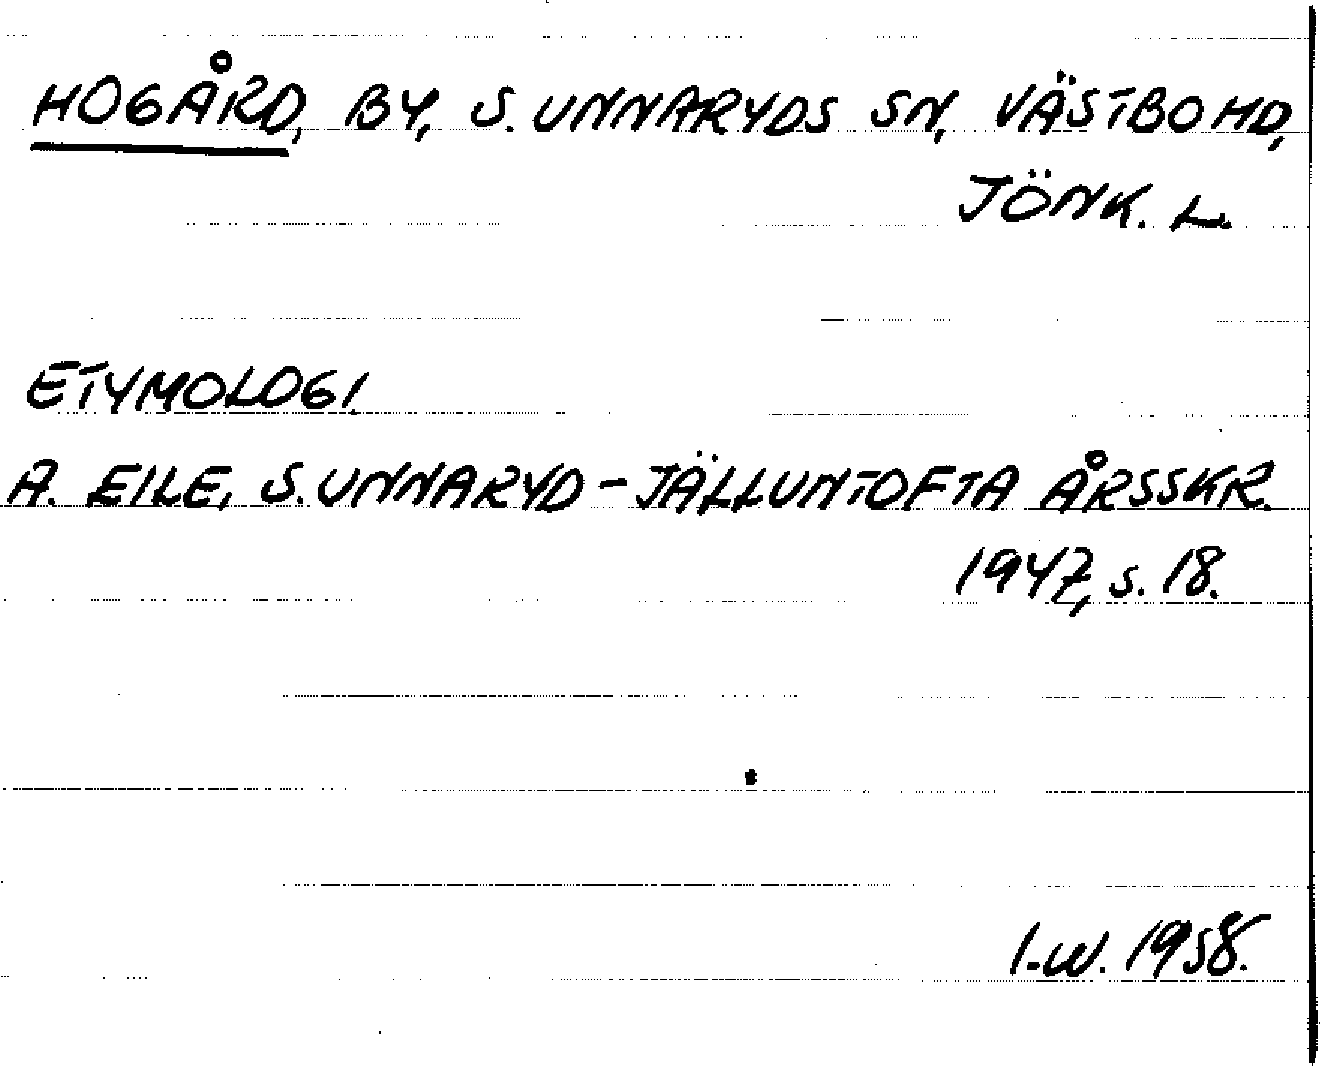 HOGÅRD, BY, S. UNNARYDS SN, VÄSTBO HD,
JÖNK. L.
ETYMOLOGI.
A. EILE, S. UNNARYD - JÄLLUNTOFTA ÅRSSKR.
1947, s. 18.
I-w. 1958.